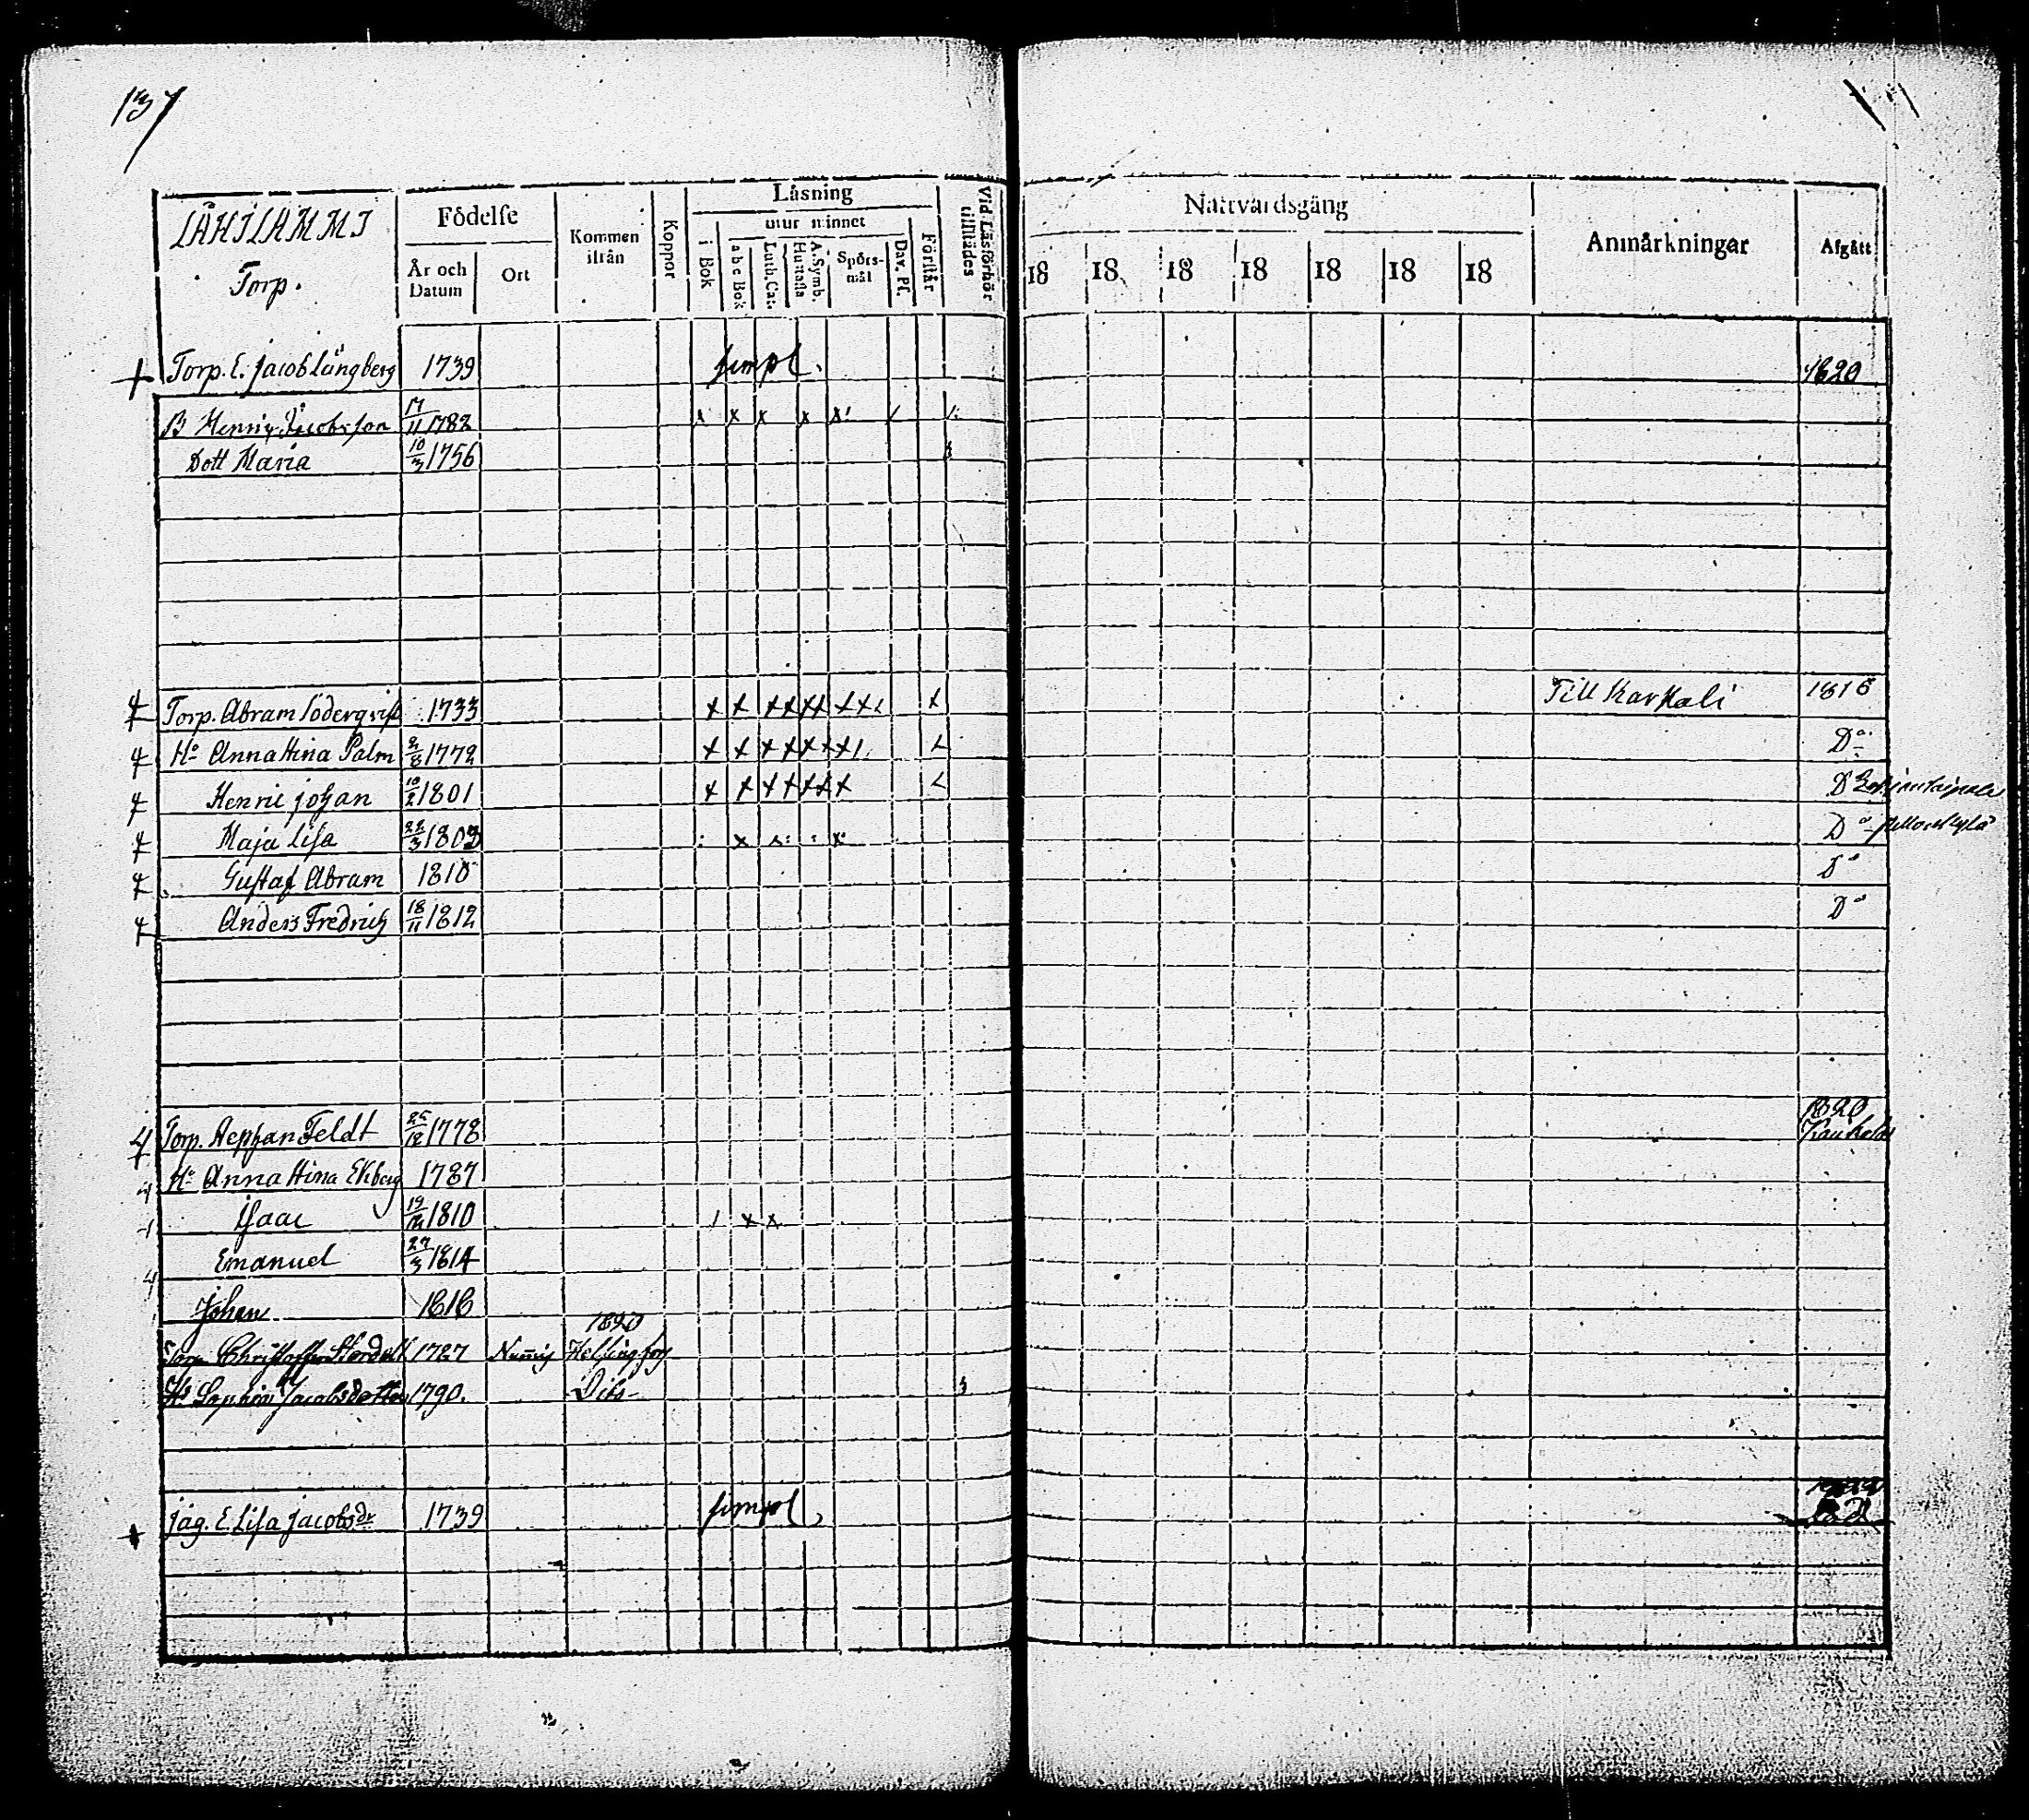 137
LÄHILAMMI
Torp.
Födelse
År och Datum
Ort
Kommen ifrån
Koppor
Läsning
i Bok
utur minnet
abc Bok
Luth. Cat.
A. Symb. Hustafla
Spörsmål
Dav. Ps.
Förstår
Vid Läsförhör tillstädes
Nattvardsgång
18 18 18 18 18 18 18
Anmärkningar
Afgått
Torp. E. Jacob Längberg 1739 simpl. 1820
B Henric Jacobsson 17/11 1782 x x x x x
Dott Maria 10/3 1756
Torp. Abram Söderqvist 1733 Till Karkali 1816
Hu Anna Stina Palm 2/8 1772 Do
Henric Johan 10/2 1801 Do
Maja Lisa 22/3 1803 Do
Gustaf Abram 1810 Do
Anders Fredrich 18/11 1812 Do
Torp. Stephan Feldt 25/12 1778 1820
Hu Anna Stina Ekberg 1787
Isaac 19/12 1810
Emanuel 27/3 1814
Johan 1818
1820
Torp Christoffer 1787 Helsingfors
Hu Sophia Jacobsdotter 1790. Dito
Jäg. E. Lisa Jacobsdr 1739 simpl.